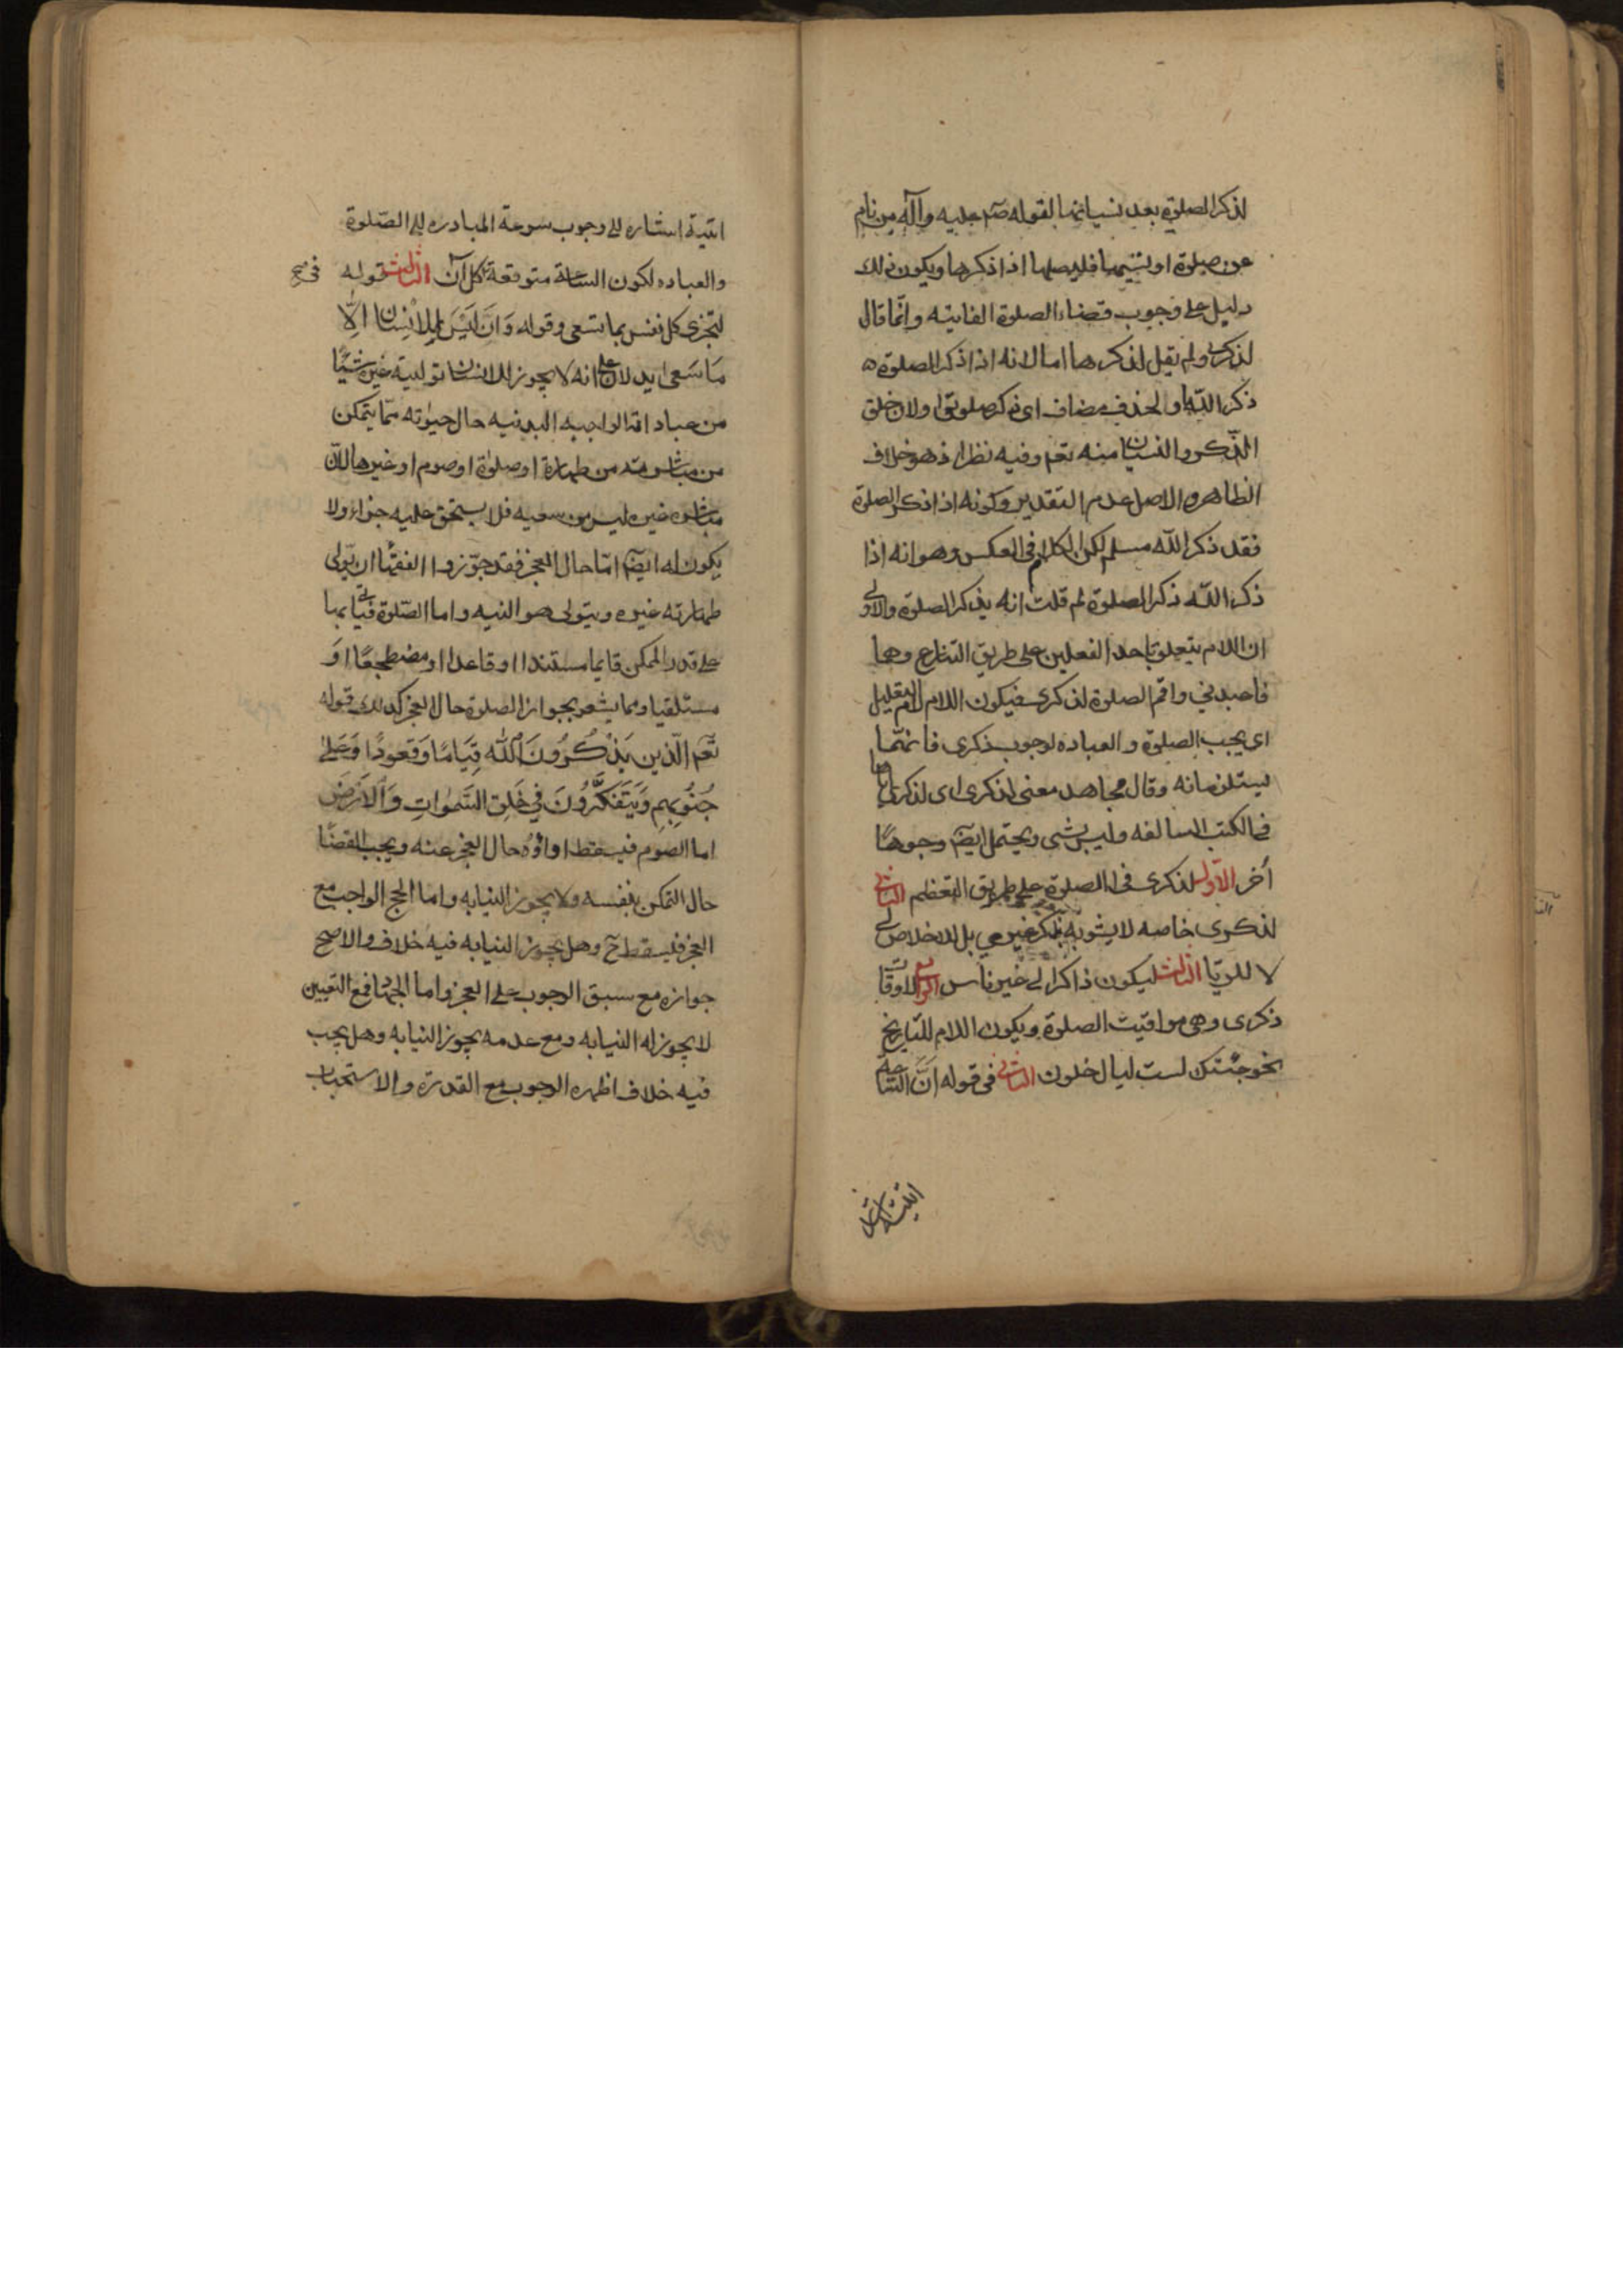 لذكر الصلوة بعد نسيانها لقوله صم عليه وآله من نام
عن صلوة او نسيها فليصلها اذا ذكرها ويكون ذلك
دليل على وجوب قضاء الصلوة الفايته وانما قال
لذكرى ولم يقل لذكرها اما لانه اذا ذكر الصلوة
ذكر الله او لحذف مضاف اى ذكر صلوتى او لان خلق
الذكر والنسيان منه تعم وفيه نظر اذ هو خلاف
الظاهر والاصل عدم التقدير وكونه اذا ذكر الصلوة
فقد ذكر الله مسلم لكن الكلام فى العكس وهو انه اذا
ذكر الله ذكر الصلوة لم قلت انه يذكر الصلوة والاولى
ان اللام يتعلق باحد الفعلين على طريق التنازع وهما
فاعبدنى واقم الصلوة لذكرى فيكون اللام للتعليل
اى يجب الصلوة والعباده لوجوب ذكرى فانهما
يستلزمانه وقال مجاهد معنى لذكرى اى لذكرى اياها
فى الكتب السالفه وليس بشى ويحتمل ايضا وجوها
أخر الاول لذكرى فى الصلوة على طريق التعظيم الثانى
لذكرى خاصه لا يشوبه بذكر غيرى بل للاخلاص لى
لا للريا الثالث ليكون ذاكرا لى غير ناس الرابع لاوقات
ذكرى وهى مواقيت الصلوة ويكون اللام للتاريخ
نحو جئتك لست ليال خلون الثانى فى قوله ان الساعة
اتية اشاره
اتية اشاره الى وجوب سرعة المبادره الى الصلوة
والعباده لكون الساعة متوقعة كل آن الثالث قوله فى صح
لتجزى كل نفس بما تسعى وقوله وَاَنْ لَيْسَ لِلْاِنْسان اِلّا
مَا سَعى يدلان على انه لا يجوز للانسان تولية غيره شيئا
من عباداته الواجبه البدنيه حال حيوته مما يتمكن
من مباشرته من طهارة او صلوة او صوم او غيرها لان
مباشره غيره ليس من سعيه فلا يستحق عليه جزاء ولا
يكون له ايضا اما حال العجز فقد جوزوا الفقها ان يولى
طهارته غيره ويتولى هو النيه واما الصلوة فياتى بها
على قدر الممكن قايما مستندا او قاعدا او مضطجعا او
مستلقيا ومما يشعر بجواز الصلوة حال العجز كذلك قوله
تعم الّذين يَذْكُرُونَ اَللّٰه قِيَامًا وَقعودًا وَعَلى
جُنُوبِهِم وَيَتَفَكَّرُونَ فِي خَلقِ السَّمٰواتِ وَالْاَرْضِ
اما الصوم فيسقط اداؤه حال العجز عنه ويجب القضا
حال التمكن بنفسه ولا يجوز النيابه واما الحج الواجب مع
العجز فيسقط ح وهل يجوز النيابه فيه خلاف والاصح
جوازه مع سبق الوجوب على العجز واما الجهاد فمع التعيين
لا يجوز له النيابه ومع عدمه يجوز النيابه وهل يجب
فيه خلاف اظهره الوجوب مع القدرة والاستحباب